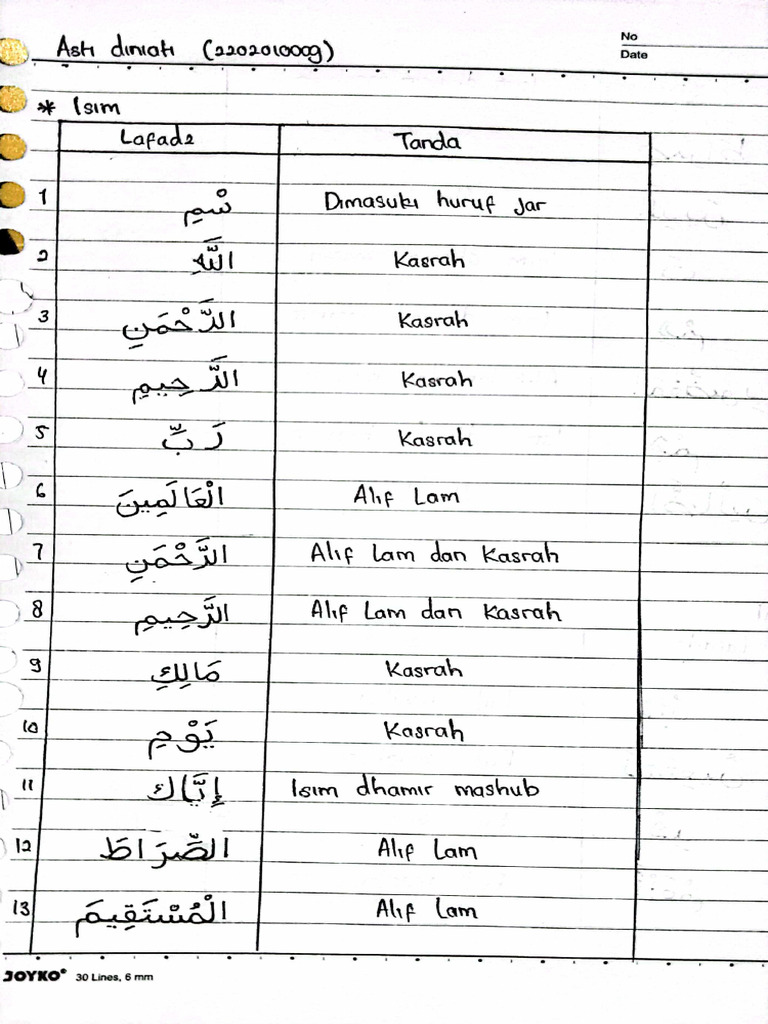 No
Asti diniati (2202010009)
Date
* Isim
Lafadz Tanda
1 سْمِ Dimasuki huruf jar
2 اللَّهِ Kasrah
3 الرَّحْمَنِ Kasrah
4 الرَّحِيمِ Kasrah
5 رَبِّ Kasrah
6 الْعَالَمِينَ Alif Lam
7 الرَّحْمَنِ Alif Lam dan Kasrah
8 الرَّحِيمِ Alif Lam dan Kasrah
9 مَالِكِ Kasrah
10 يَوْمِ Kasrah
11 إِيَّاكَ Isim dhamir mashub
12 الصِّرَاطَ Alif Lam
13 الْمُسْتَقِيمَ Alif Lam
JOYKO® 30 Lines, 6 mm